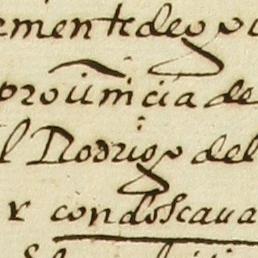 emente de
prouinçia de
l Rodrigo del
r con dos caua